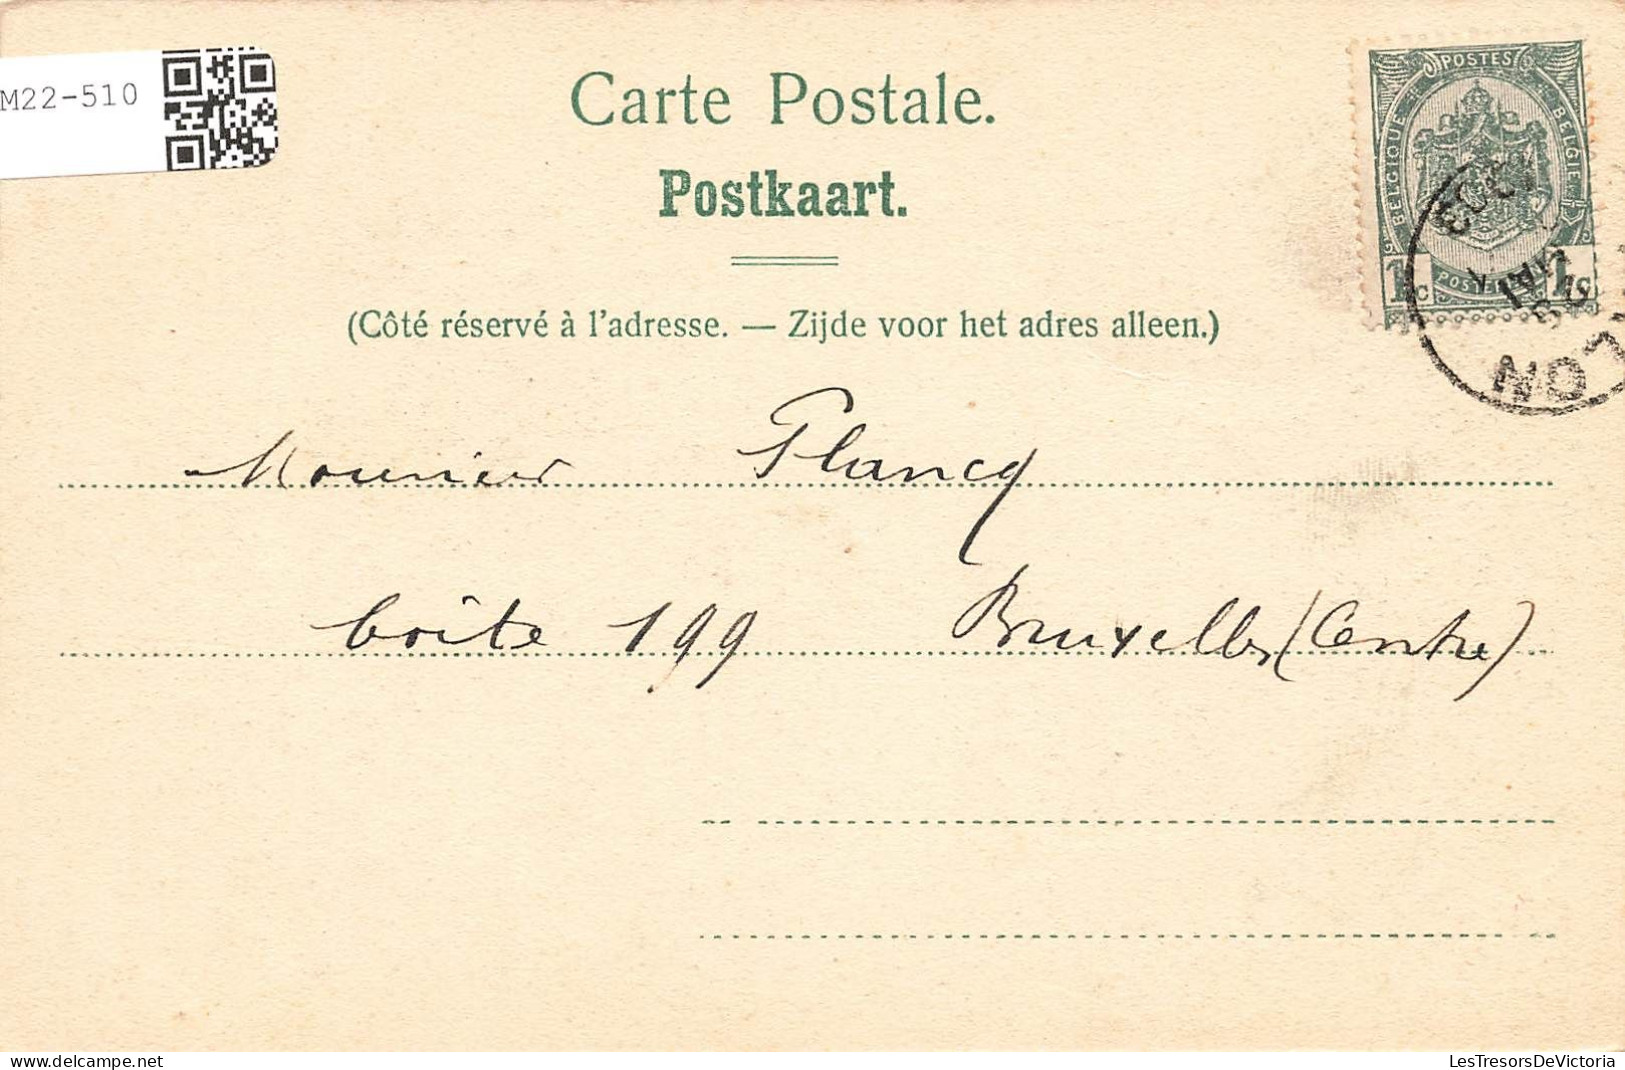 M22-510
Carte Postale.
Postkaart.
(Côté réservé à l'adresse. — Zijde voor het adres alleen.)
POSTES
BELGIQUE
BELGIE
1c
1c
1903
MAI
LON
Monsieur Plancq
boîte 199 Bruxelles (Centre)
delcampe.net
LesTresorsDeVictoria